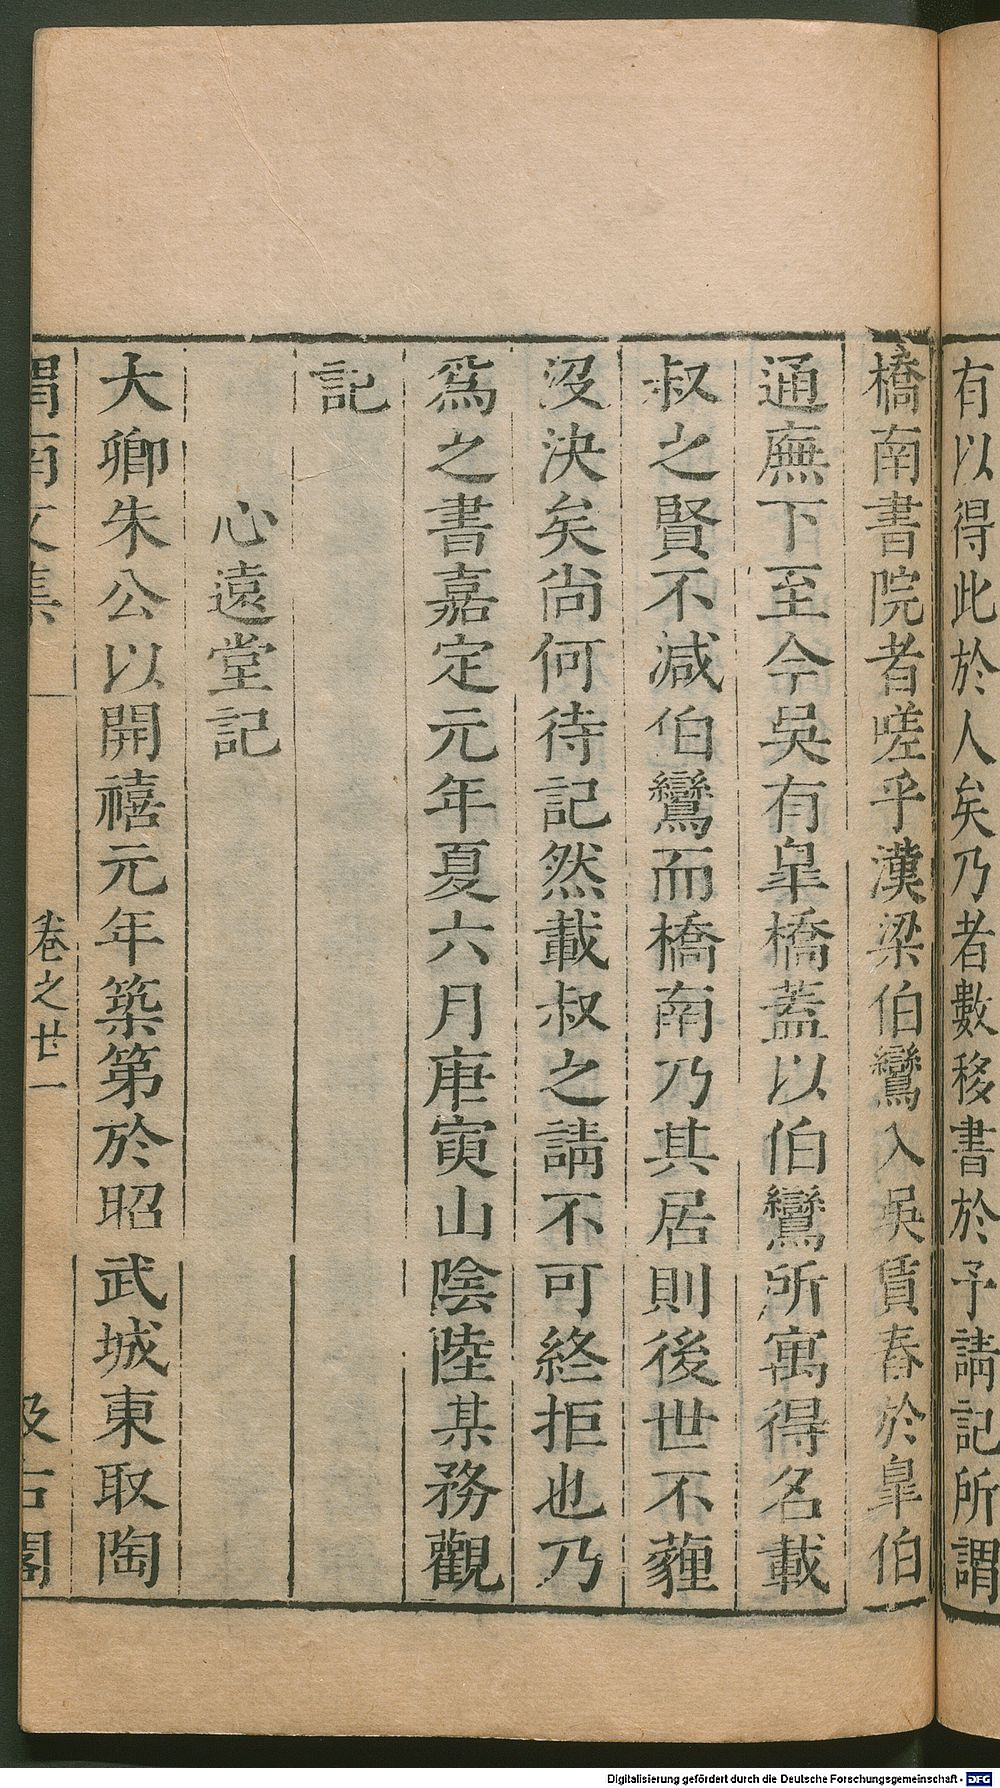 有以得此於人矣乃者數移書於予請記所謂
橋南書院者嗟乎漢梁伯鸞入吳賃舂於皐伯
通廡下至今吳有皐橋蓋以伯鸞所寓得名載
叔之賢不減伯鸞而橋南乃其居則後世不薶
沒決矣尚何待記然載叔之請不可終拒也乃
爲之書嘉定元年夏六月庚寅山陰陸某務觀
記
心遠堂記
大卿朱公以開禧元年築第於昭武城東取陶
渭南文集 卷之廿一 汲古閣
Digitalisierung gefördert durch die Deutsche Forschungsgemeinschaft - DFG